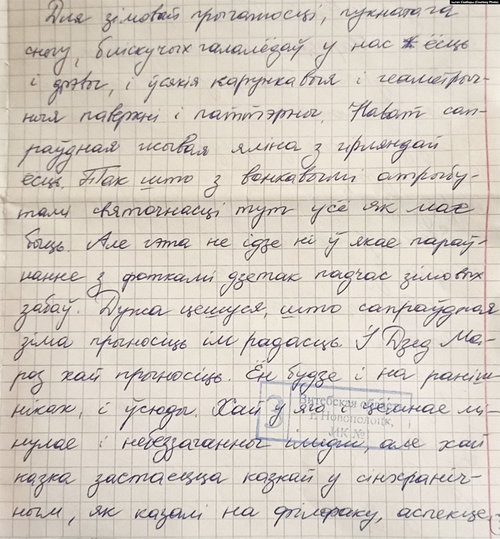 Для зімовай прыгажосці, пухнатага
снегу, бліскучых галалёдаў у нас ёсць
і дрэвы, і ўсякія карункавыя і геаметрыч-
ныя паверхні і паттэрны. Нават сап-
раўдная жывая яліна з гірляндай
ёсць. Так што з вонкавымі атрыбу-
тамі святочнасці тут усё як мае
быць. Але гэта не ідзе ні ў якае параў-
нанне з фоткамі дзетак падчас зімовых
забаў. Дужа цешуся, што сапраўдная
зіма прыносіць ім радасць. І Дзед Ма-
роз хай прыносіць. Ён будзе і на раніш-
ніках, і ўсюды. Хай у яго і цёмнае мі-
нулае і небеззаганны імідж, але хай
казка застаецца казкай у сінхраніч-
ным, як казалі на філфаку, аспекце.
Витебская
г. Новополоцк,
ИК №